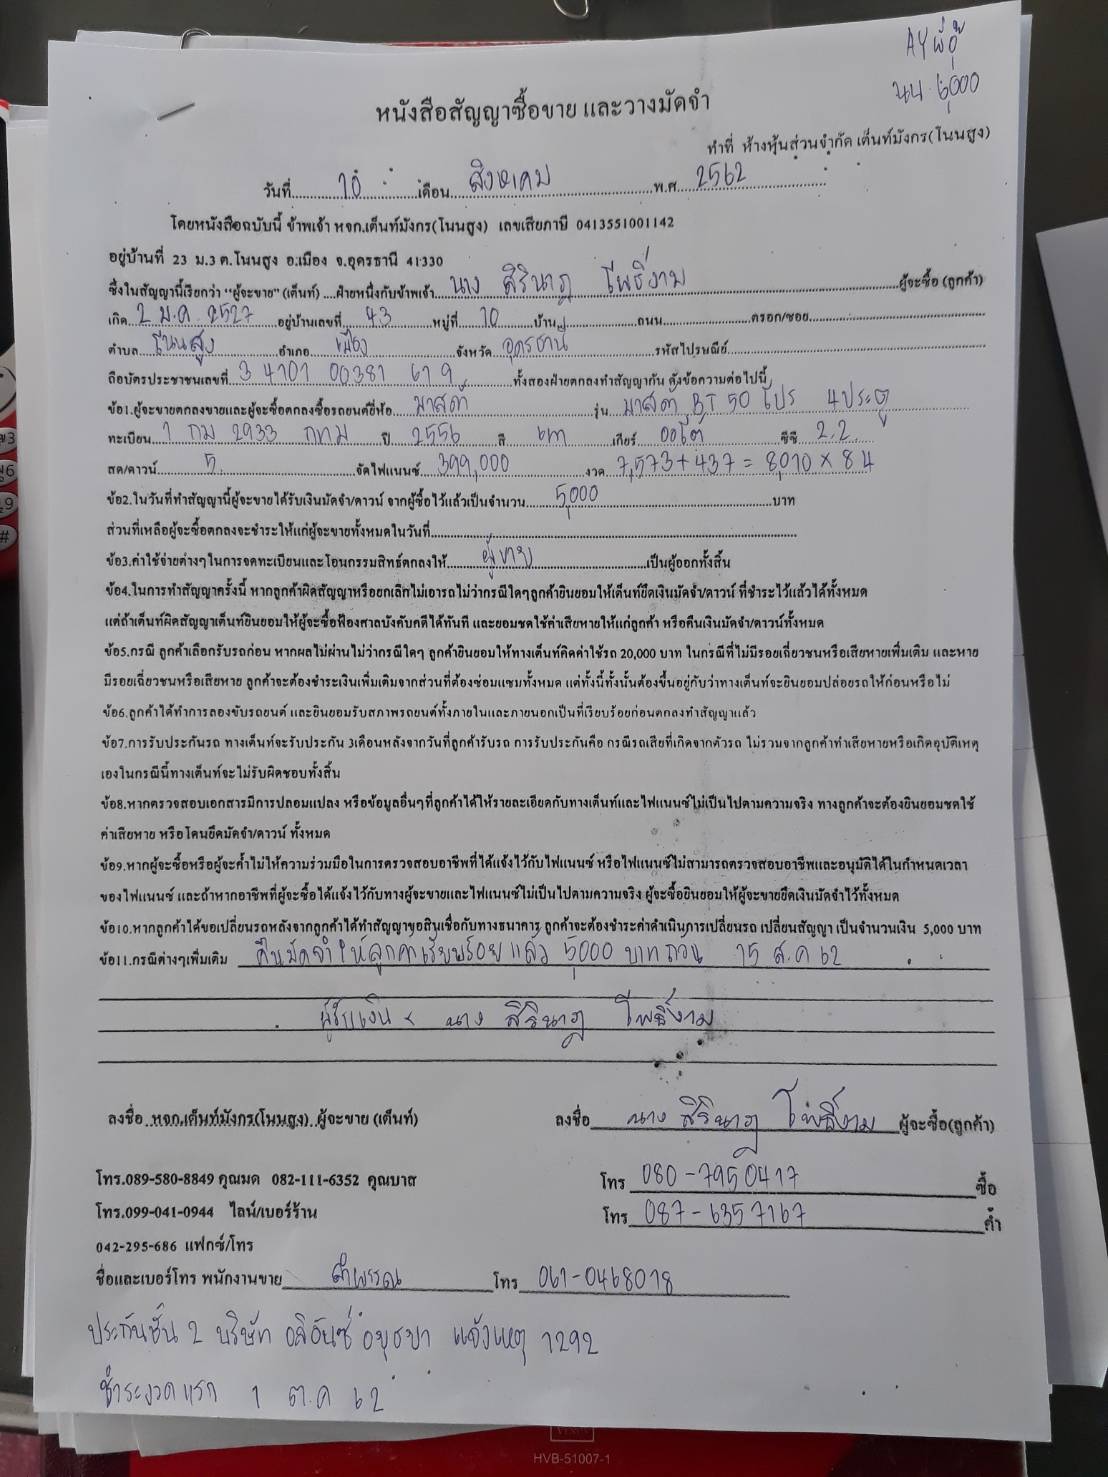 AY
นน 6,000
หนังสือสัญญาซื้อขาย และวางมัดจำ
ทำที่ ห้างหุ้นส่วนจำกัด เต็นท์มังกร(โนนสูง)
วันที่ 10 เดือน สิงหาคม พ.ศ. 2562
โดยหนังสือฉบับนี้ ข้าพเจ้า หจก.เต็นท์มังกร(โนนสูง) เลขเสียภาษี 0413551001142
อยู่บ้านที่ 23 ม.3 ต.โนนสูง อ.เมือง จ.อุดรธานี 41330
ซึ่งในสัญญานี้เรียกว่า "ผู้จะขาย" (เต็นท์) ....ฝ่ายหนึ่งกับข้าพเจ้า นาง สิรินาฏ โพธิ์งาม ผู้จะซื้อ (ลูกค้า)
เกิด 2 ม.ค. 2527 อยู่บ้านเลขที่ 43 หมู่ที่ 10 บ้าน ถนน ตรอก/ซอย
ตำบล โนนสูง อำเภอ เมือง จังหวัด อุดรธานี รหัสไปรษณีย์
ถือบัตรประชาชนเลขที่ 3 4101 00381 61 9 ทั้งสองฝ่ายตกลงทำสัญญากัน ดังข้อความต่อไปนี้
ข้อ1.ผู้จะขายตกลงขายและผู้จะซื้อตกลงซื้อรถยนต์ยี่ห้อ มาสด้า รุ่น มาสด้า BT 50 โปร 4ประตู
ทะเบียน 1 กม 2933 กทม ปี 2556 สี เทา เกียร์ ออโต้ ซีซี 2.2
สด/ดาวน์ 5 จัดไฟแนนซ์ 399,000 งวด 7,573+437 = 8,010 × 84
ข้อ2.ในวันที่ทำสัญญานี้ผู้จะขายได้รับเงินมัดจำ/ดาวน์ จากผู้ซื้อไว้แล้วเป็นจำนวน 5,000 บาท
ส่วนที่เหลือผู้จะซื้อตกลงจะชำระให้แก่ผู้จะขายทั้งหมดในวันที่
ข้อ3.ค่าใช้จ่ายต่างๆในการจดทะเบียนและโอนกรรมสิทธ์ตกลงให้ ผู้ขาย เป็นผู้ออกทั้งสิ้น
ข้อ4.ในการทำสัญญาครั้งนี้ หากลูกค้าผิดสัญญาหรือยกเลิกไม่เอารถไม่ว่ากรณีใดๆลูกค้ายินยอมให้เต็นท์ยึดเงินมัดจำ/ดาวน์ ที่ชำระไว้แล้วได้ทั้งหมด
แต่ถ้าเต็นท์ผิดสัญญาเต็นท์ยินยอมให้ผู้จะซื้อฟ้องศาลบังคับคดีได้ทันที และยอมชดใช้ค่าเสียหายให้แก่ลูกค้า หรือคืนเงินมัดจำ/ดาวน์ทั้งหมด
ข้อ5.กรณี ลูกค้าเลือกรับรถก่อน หากผลไม่ผ่านไม่ว่ากรณีใดๆ ลูกค้ายินยอมให้ทางเต็นท์คิดค่าใช้รถ 20,000 บาท ในกรณีที่ไม่มีรอยเฉี่ยวชนหรือเสียหายเพิ่มเติม และหาย
มีรอยเฉี่ยวชนหรือเสียหาย ลูกค้าจะต้องชำระเงินเพิ่มเติมจากส่วนที่ต้องซ่อมแซมทั้งหมด แต่ทั้งนี้ทั้งนั้นต้องขึ้นอยู่กับว่าทางเต็นท์จะยินยอมปล่อยรถให้ก่อนหรือไม่
ข้อ6.ลูกค้าได้ทำการลองขับรถยนต์ และยินยอมรับสภาพรถยนต์ทั้งภายในและภายนอกเป็นที่เรียบร้อยก่อนตกลงทำสัญญาแล้ว
ข้อ7.การรับประกันรถ ทางเต็นท์จะรับประกัน 3เดือนหลังจากวันที่ลูกค้ารับรถ การรับประกันคือ กรณีรถเสียที่เกิดจากตัวรถ ไม่รวมจากลูกค้าทำเสียหายหรือเกิดอุบัติเหตุ
เองในกรณีนี้ทางเต็นท์จะไม่รับผิดชอบทั้งสิ้น
ข้อ8.หากตรวจสอบเอกสารมีการปลอมแปลง หรือข้อมูลอื่นๆที่ลูกค้าได้ให้รายละเอียดกับทางเต็นท์และไฟแนนซ์ไม่เป็นไปตามความจริง ทางลูกค้าจะต้องยินยอมชดใช้
ค่าเสียหาย หรือโดนยึดมัดจำ/ดาวน์ ทั้งหมด
ข้อ9.หากผู้จะซื้อหรือผู้จะค้ำไม่ให้ความร่วมมือในการตรวจสอบอาชีพที่ได้แจ้งไว้กับไฟแนนซ์ หรือไฟแนนซ์ไม่สามารถตรวจสอบอาชีพและอนุมัติได้ในกำหนดเวลา
ของไฟแนนซ์ และถ้าหากอาชีพที่ผู้จะซื้อได้แจ้งไว้กับทางผู้จะขายและไฟแนนซ์ไม่เป็นไปตามความจริง ผู้จะซื้อยินยอมให้ผู้จะขายยึดเงินมัดจำไว้ทั้งหมด
ข้อ10.หากลูกค้าได้ขอเปลี่ยนรถหลังจากลูกค้าได้ทำสัญญาขอสินเชื่อกับทางธนาคาร ลูกค้าจะต้องชำระค่าดำเนินการเปลี่ยนรถ เปลี่ยนสัญญา เป็นจำนวนเงิน 5,000 บาท
ข้อ11.กรณีต่างๆเพิ่มเติม คืนมัดจำให้ลูกค้าเรียบร้อยแล้ว 5,000 บาทถวน 15 ส.ค 62
ผู้รับเงิน × นาง สิรินาฏ โพธิ์งาม
ลงชื่อ หจก.เต็นท์มังกร(โนนสูง) ผู้จะขาย (เต็นท์) ลงชื่อ นาง สิรินาฏ โพธิ์งาม ผู้จะซื้อ(ลูกค้า)
โทร.089-580-8849 คุณมด 082-111-6352 คุณบาส โทร 080-7950417 ซื้อ
โทร.099-041-0944 ไลน์/เบอร์ร้าน โทร 087-6357167 ค้ำ
042-295-686 แฟกซ์/โทร
ชื่อและเบอร์โทร พนักงานขาย ลำพรรณ โทร 061-0468018
ประกันชั้น 2 บริษัท อลิอันซ์ อยุธยา แจ้งเหตุ 1292
ชำระงวดแรก 1 ต.ค 62
HVB-51007-1